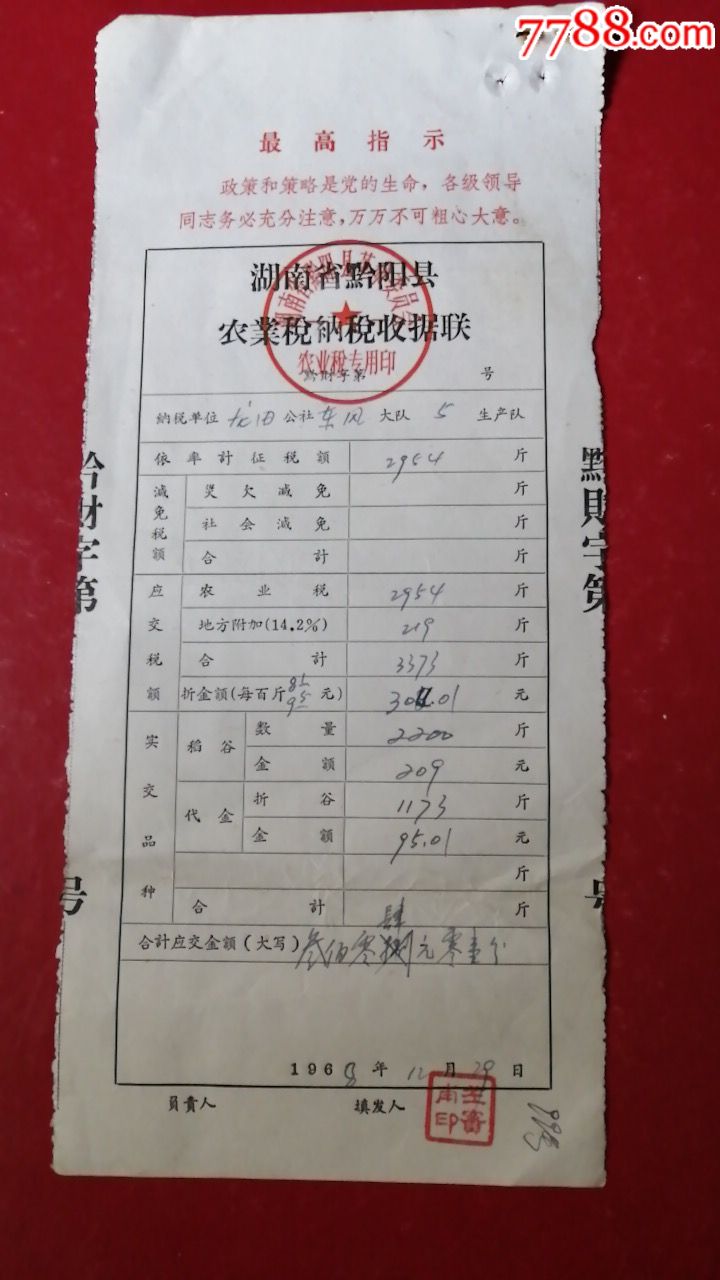 7788.com
最高指示
政策和策略是党的生命，各级领导
同志务必充分注意，万万不可粗心大意。
湖南省黔阳县
农業稅納稅收据联
农业税专用印
黔財字第 号
納稅单位 龙田 公社 东风 大队 5 生产队
依率計征稅額 2954 斤
減免稅額 災欠減免 斤
社会減免 斤
合計 斤
应交稅額 农业稅 2954 斤
地方附加(14.2%) 219 斤
合計 3373 斤
折金額(每百斤 9.5 元) 304.01 元
实交品种 稻谷 数量 2200 斤
金額 209 元
代金 折谷 1173 斤
金額 95.01 元
斤
合計 斤
合計应交金額(大写) 叁佰零肆元零壹分
1968 年 12 月 29 日
員責人 填发人
黔財字第 号
黔財字第 号